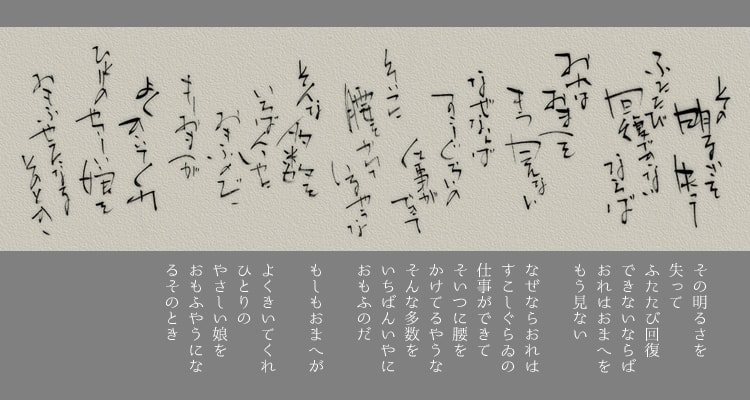 その
明るさを失って
ふたたび
回復できない
ならば
おれは
おまへを
もう見ない
なぜならば
すこしぐらゐの
仕事ができて
そいつに
腰をかけてゐるやうな
そんな多数を
いちばんいやに
おもふのだ
もしおまへが
よくきいてくれ
ひとりのやさしい娘を
おもふやうになる
そのとき
その明るさを
失って
ふたたび回復
できないならば
おれはおまへを
もう見ない
なぜならおれは
すこしぐらゐの
仕事ができて
そいつに腰を
かけてるやうな
そんな多数を
いちばんいやに
おもふのだ
もしもおまへが
よくきいてくれ
ひとりの
やさしい娘を
おもふやうにな
るそのとき